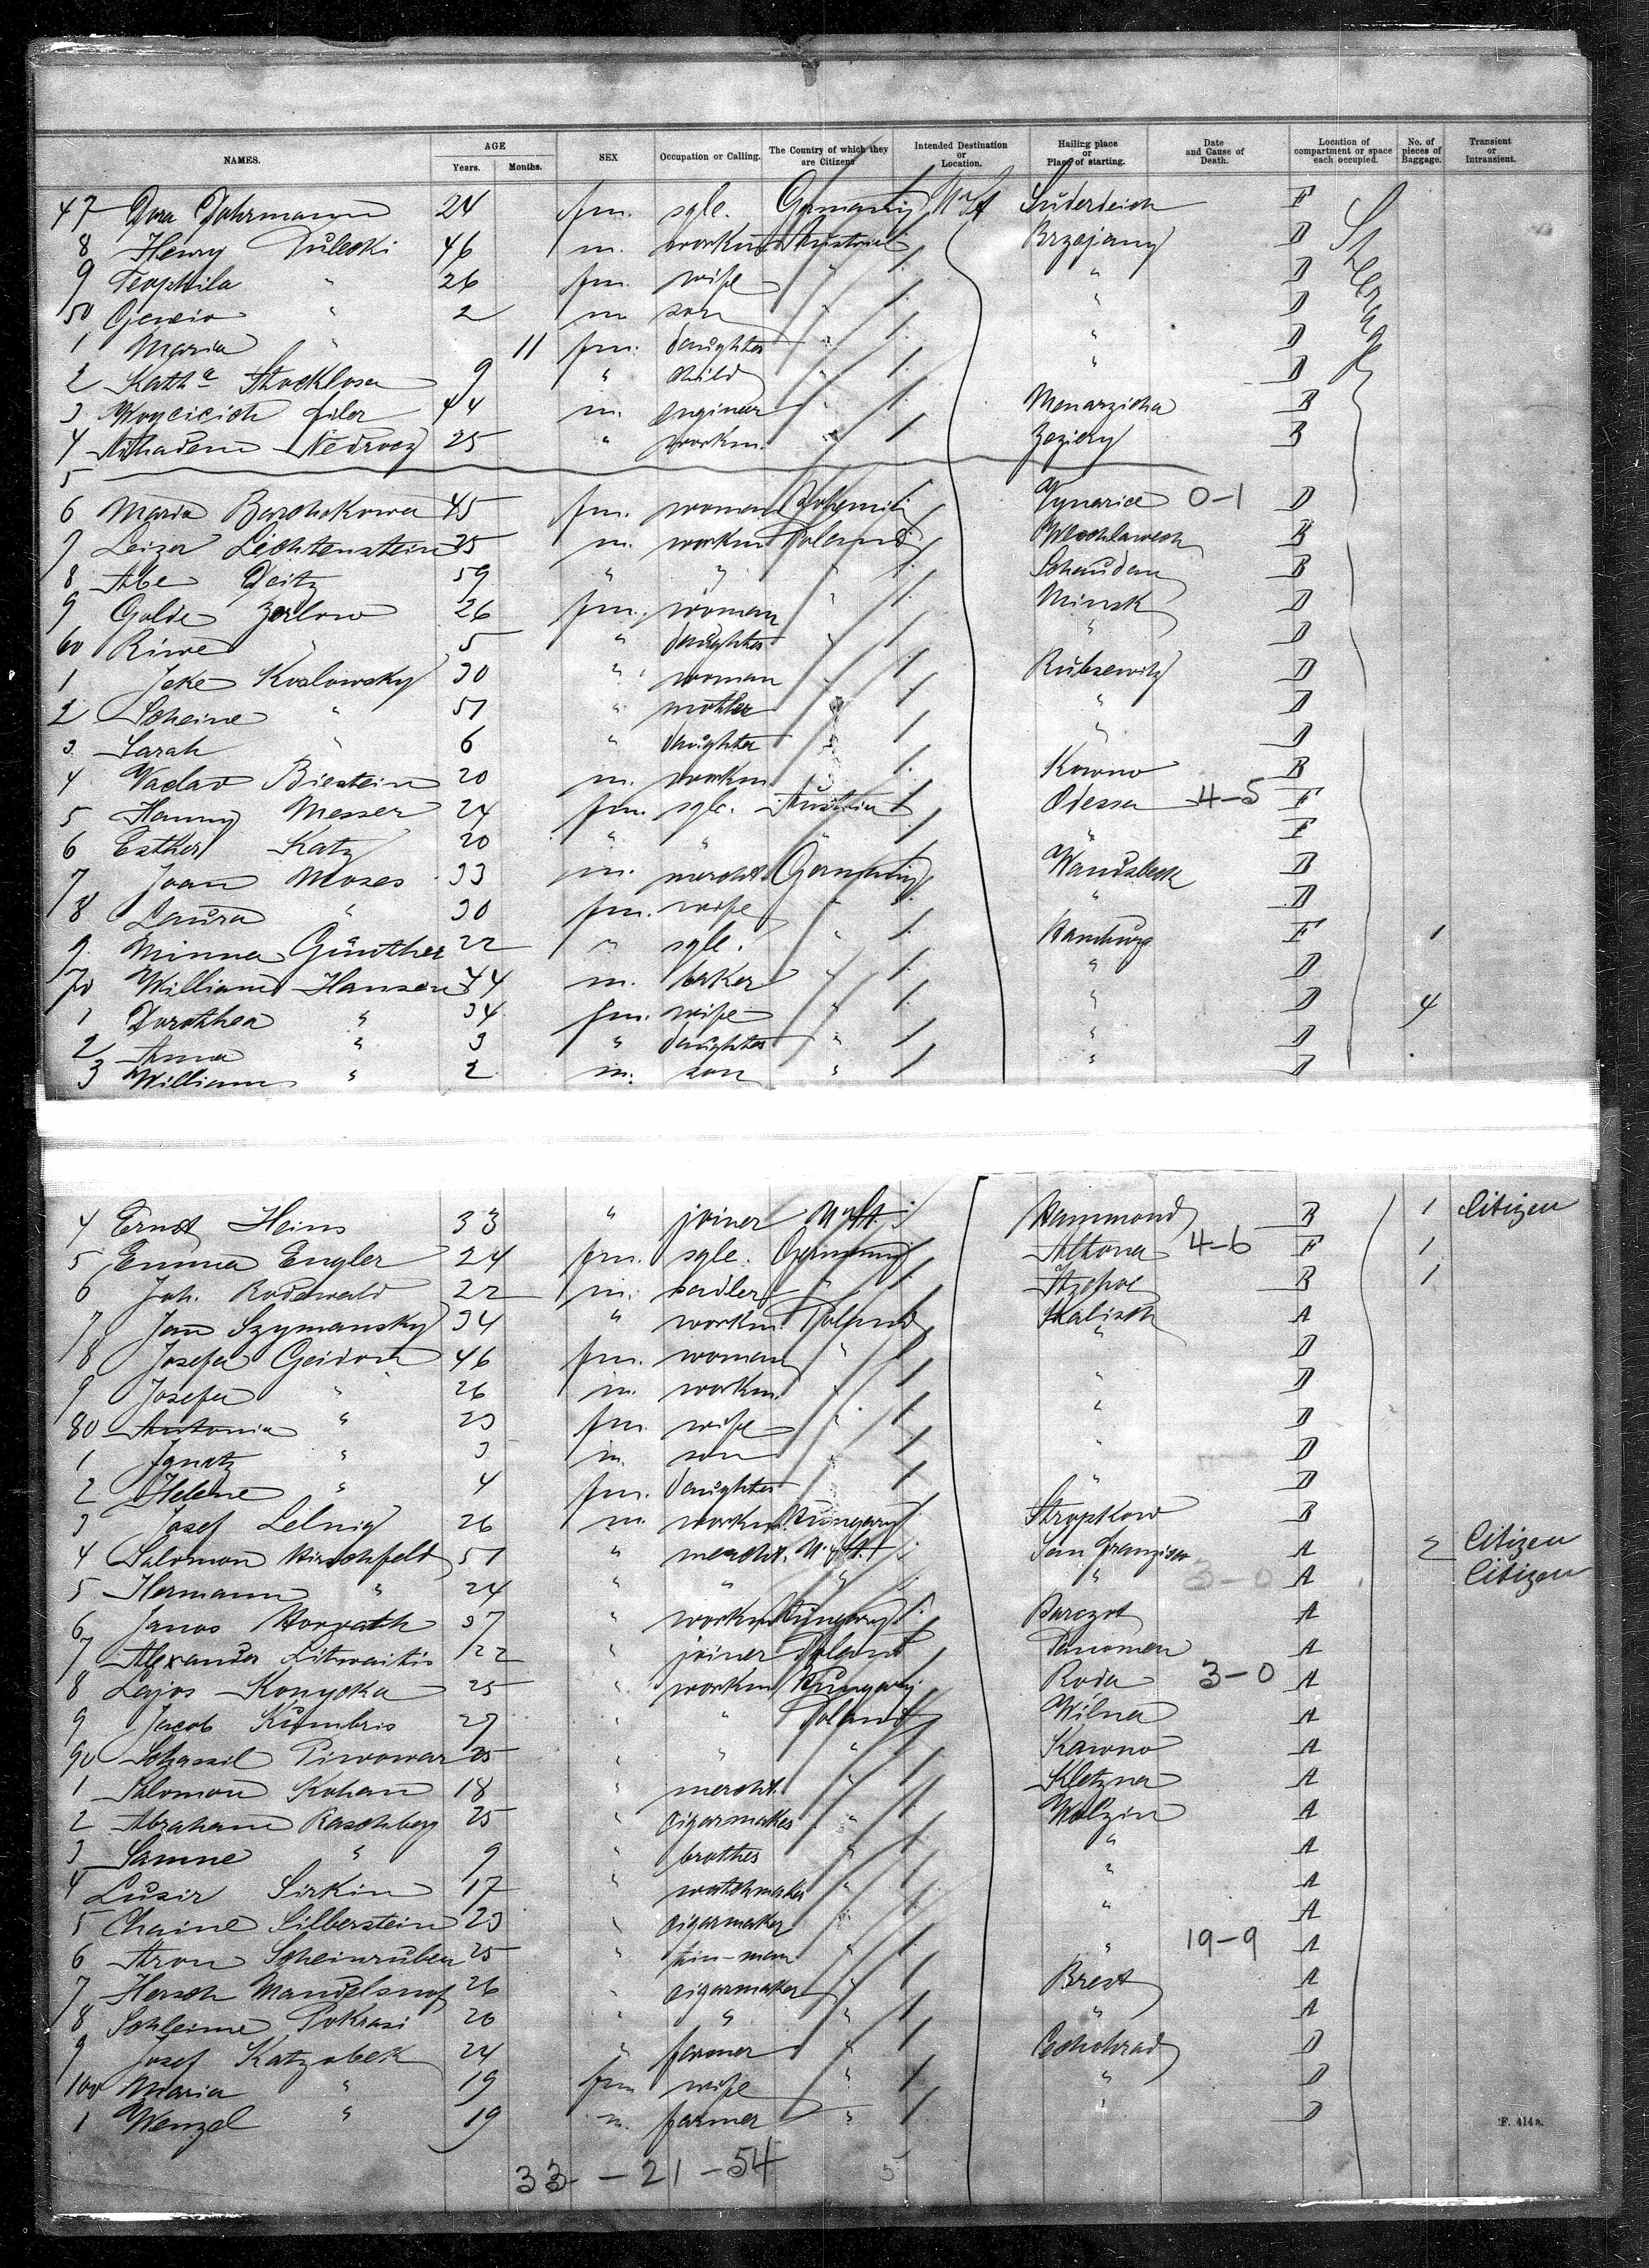 NAMES. AGE Years. Months. SEX Occupation or Calling. The Country of which they are Citizens Intended Destination or Location. Hailing place or Place of starting. Date and Cause of Death. Location of compartment or space each occupied. No. of pieces of Baggage. Transient or Intransient.
47 Dora Dohrmann 24 fm. sgle. Germany Süderdeich F
8 Henry 46 m. workm Austria Brzejany D Steerage
9 Teophila " 26 fm. wife " " D
50 " 2 m son " " D
1 Maria " 11 fm. daughter " " D
2 Kath a 9 " child " " D
3 44 m. engineer " B
4 25 " workm. " B
5
6 Maria 45 fm. woman Bohemia 0-1 D
7 Leizer Lichtenstein 35 m. workm Poland B
8 Abe Deitz 59 " " " B
9 Golde 26 fm. woman " Minsk D
60 Riwe " 5 " daughter " " D
1 Jeke Koslowsky 30 " woman " Rubsewitz D
2 Scheine " 51 " mother " " D
3 Sarah " 6 " daughter " " D
4 Vaclav Biestein 20 m. workm " Kowno B
5 Hanny Messer 24 fm. sgle. Austria Odessa 4-5 F
6 Esther Katz 20 " " " " F
7 Joan Moses 33 m. mercht. Germany Wandsbeck D
8 Laura " 30 fm. wife " " D
9 Minna Günther 22 " sgle. " Hamburg F 1
70 William Hansen 44 m. baker " " D
1 Dorothea " 34 fm. wife " " D 4
2 Anna " 3 " daughter " " D
3 William " 2 m. son " " D
4 Ernst Heins 33 " joiner Hammond B 1 Citizen
5 Emma Engler 24 fm. sgle. Germany Altona 4-6 F 1
6 Joh. Rodewald 22 m. sadler " Itzehoe B 1
7 Jan Szymansky 34 " workm. Poland Kalisch A
8 Josefa 46 fm. woman " " D
9 Josefa " 26 m. workm. " " D
80 Antonia " 23 fm. wife " " D
1 Ignatz " 3 m. son " " D
2 Helene " 4 fm. daughter " " D
3 Josef 26 m. workm. Hungary Stropkow B
4 Salomon Hirschfeld 51 " mercht. San Franzisco A 2 Citizen
5 Hermann " 24 " " " " 3-0 A Citizen
6 Janos Horvath 37 " workm Hungary A
7 Alexander Litwaitis 22 " joiner Poland A
8 Lajos 25 " workm Hungary Roda 3-0 A
9 Jacob Kumbris 27 " " Poland Wilna A
90 Schassil Piwowar 25 " " " Kowno A
1 Salomon Kohan 18 " mercht. " A
2 Abraham Raschberg 25 " cigarmaker " Wolzin A
3 " 9 " brother " " A
4 Lusir Sirkin 17 " watchmaker " " A
5 Chaine Silberstein 23 " cigarmaker " " A
6 Aron Scheinruben 25 " tin-man " " 19-9 A
7 Hersch 26 " cigarmaker " Brest A
8 Schleime Pokrasi 20 " " " " A
9 Josef Katzobek 24 " farmer " D
100 Maria " 19 fm wife " " D
1 Wenzel " 19 m. farmer " " D
F. 414a.
33 - 21 - 54